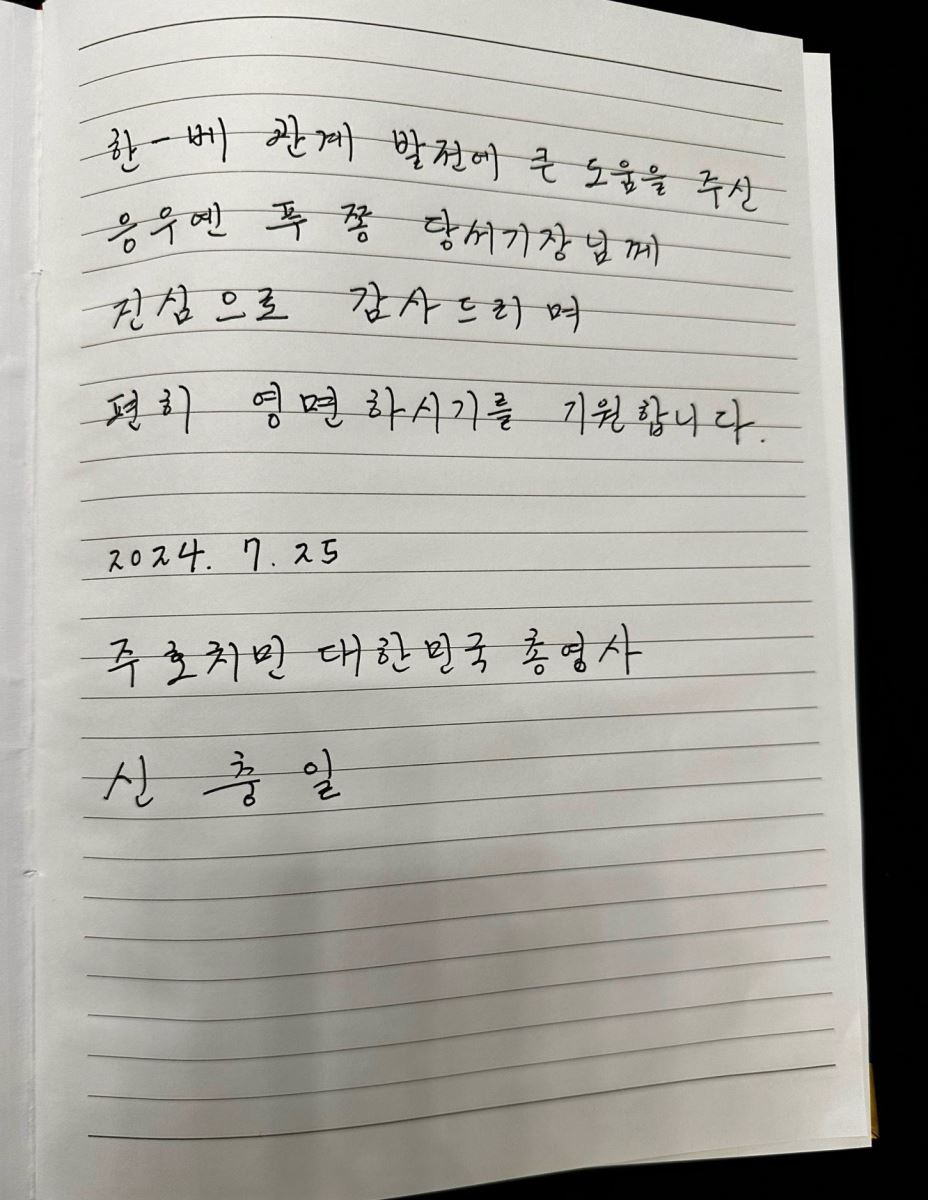 한-베 관계 발전에 큰 도움을 주신
응우옌 푸 쫑 당서기장님께
진심으로 감사드리며
편히 영면하시기를 기원합니다.
2024. 7. 25
주호치민 대한민국 총영사
신 충 일